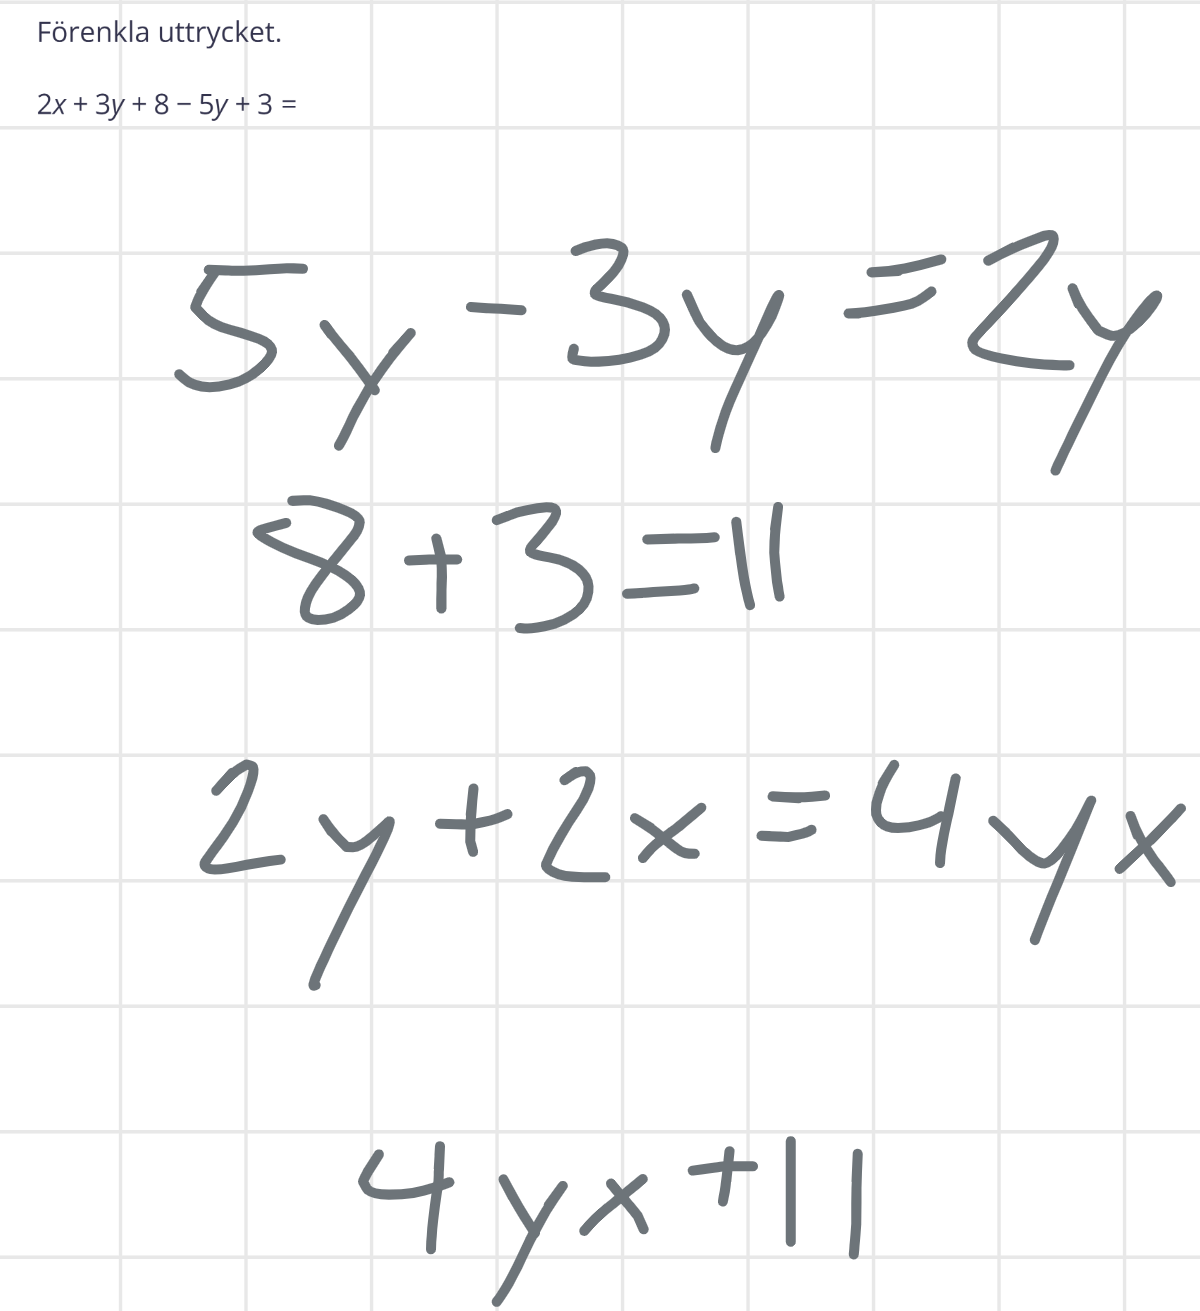 Förenkla uttrycket.
2x + 3y + 8 − 5y + 3 =
5y - 3y = 2y
8 + 3 = 11
2y + 2x = 4yx
4yx + 11